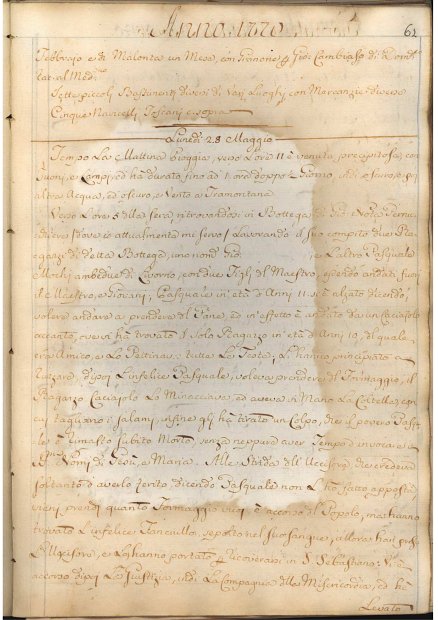 Anno 1770 61
Febbraio e di Malonza un Mese, con Limone
tat. al Med.mo
Sette piccoli Bastimenti diversi di Varj Luoghi con Mercanzie diverse
Cinque Navicelli Toscani e sopra
Lunedì 28 Maggio
Tempo La Mattina pioggia, verso L'ora 11 è venuta precipitosa, con
tuoni, e Lampi ed ha durato fino ad 1 ora doppo Giorno, indi
altra Acqua, ed oscuro, e Vento a Tramontana
Verso L'ore della sera ritrovandosi in Bottega di Gio
dove io attualmente mi servo Lavorando il suo compito due Ra-
gazzi di detta Bottega, uno nom. Gio. e L'altro Pasquale
ambedue di Livorno, con due Figli del Maestro, essendo andati fuori
il Maestro, e Giovani, Pasquale in età di Anni 11 si è alzato dicendo
volere andare a prendere del Pane, ed in effetto è andato da un Caciajolo
accanto, ove vi hà trovato il Solo Ragazzo in età di Anni 10, il quale
era Amico, e Lo Pettinava tutte Le Feste,
ruzzare, dipoi L'infelice Pasquale, voleva prendere il Formaggio, il
Ragazzo Caciajolo Lo Minacciava, ed aveva in Mano La Coltella, con
cui tagliano i Salami, infine gli hà tirato un Colpo, che il povero Pasqua-
le è rimasto subito Morto, senza neppure aver Tempo d'invocare i
SS.mi Nomi di Gesù, e Maria. Alle Strida dell'Uccisore, che credeva
soltanto d'averlo ferito, dicendo Pasquale non L'ho fatto apposta
vieni prendi quanto Formaggio vuoi è accorso il Popolo, ma hanno
trovato L'infelice Fanciullo sepolto nel suo sangue, allora han preso
L'Uccisore, e Lo hanno portato ricoverarsi in S. Sebastiano. Vi è
accorso dipoi La Giustizia, indi La Compagnia della Misericordia, ed hà
Levato